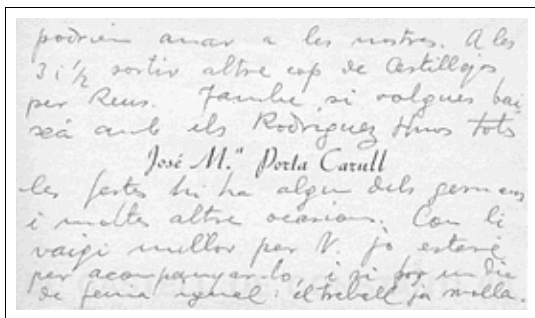 podríem anar a les nostres. A les
3 i ½ sortir altre cop de Castillejos
per Reus. Tambe, si volgues bai
xá amb els Rodriguez Hnos tots
José M.ª Porta Carull
les festes hi ha algun dels germans
i moltes altre ocasions. Con li
vaigi millor per V. jo estaré
per acompanyar-lo, i si fos un dia
de feina igual: el treball ja molla.